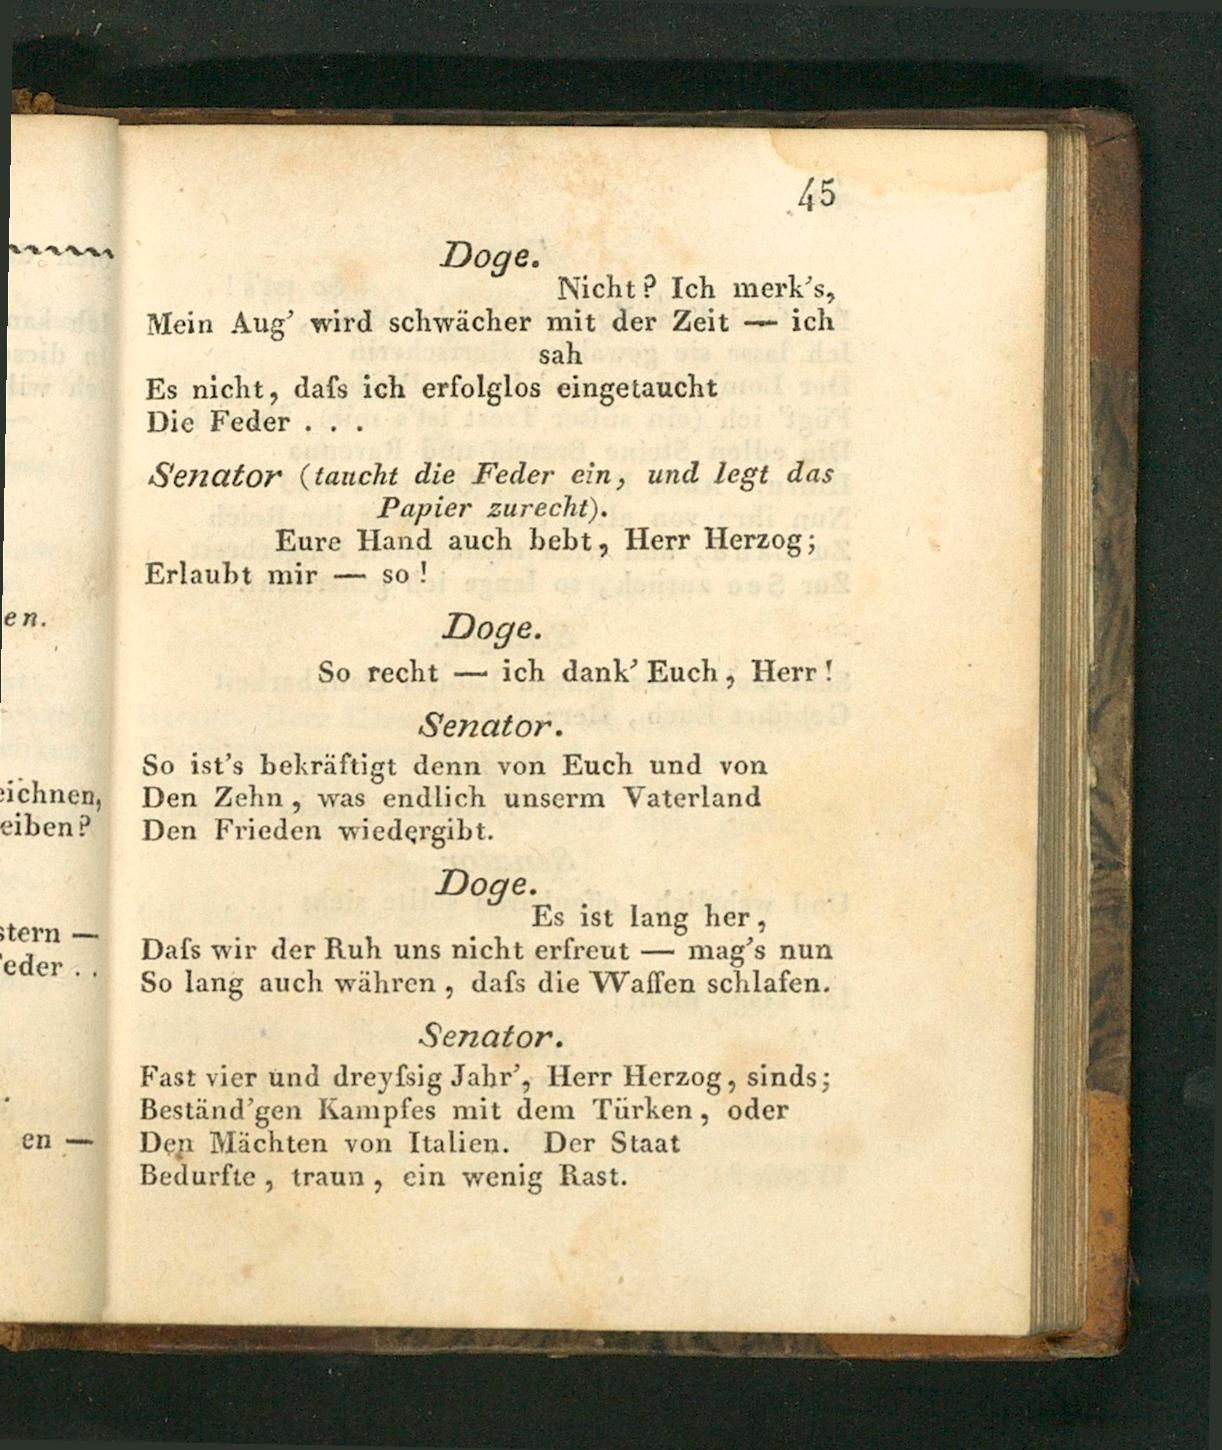 45
Doge.
Nicht? Ich merk's,
Mein Aug' wird schwächer mit der Zeit — ich
sah
Es nicht, daſs ich erfolglos eingetaucht
Die Feder . . .
Senator (taucht die Feder ein, und legt das
Papier zurecht).
Eure Hand auch bebt, Herr Herzog;
Erlaubt mir — so!
Doge.
So recht — ich dank' Euch, Herr!
Senator.
So ist's bekräftigt denn von Euch und von
Den Zehn, was endlich unserm Vaterland
Den Frieden wiedergibt.
Doge.
Es ist lang her,
Daſs wir der Ruh uns nicht erfreut — mag's nun
So lang auch währen, daſs die Waffen schlafen.
Senator.
Fast vier und dreyſsig Jahr', Herr Herzog, sinds;
Beständ'gen Kampfes mit dem Türken, oder
Den Mächten von Italien. Der Staat
Bedurfte, traun, ein wenig Rast.
en.
eichnen,
eiben?
stern —
eder . .
en —